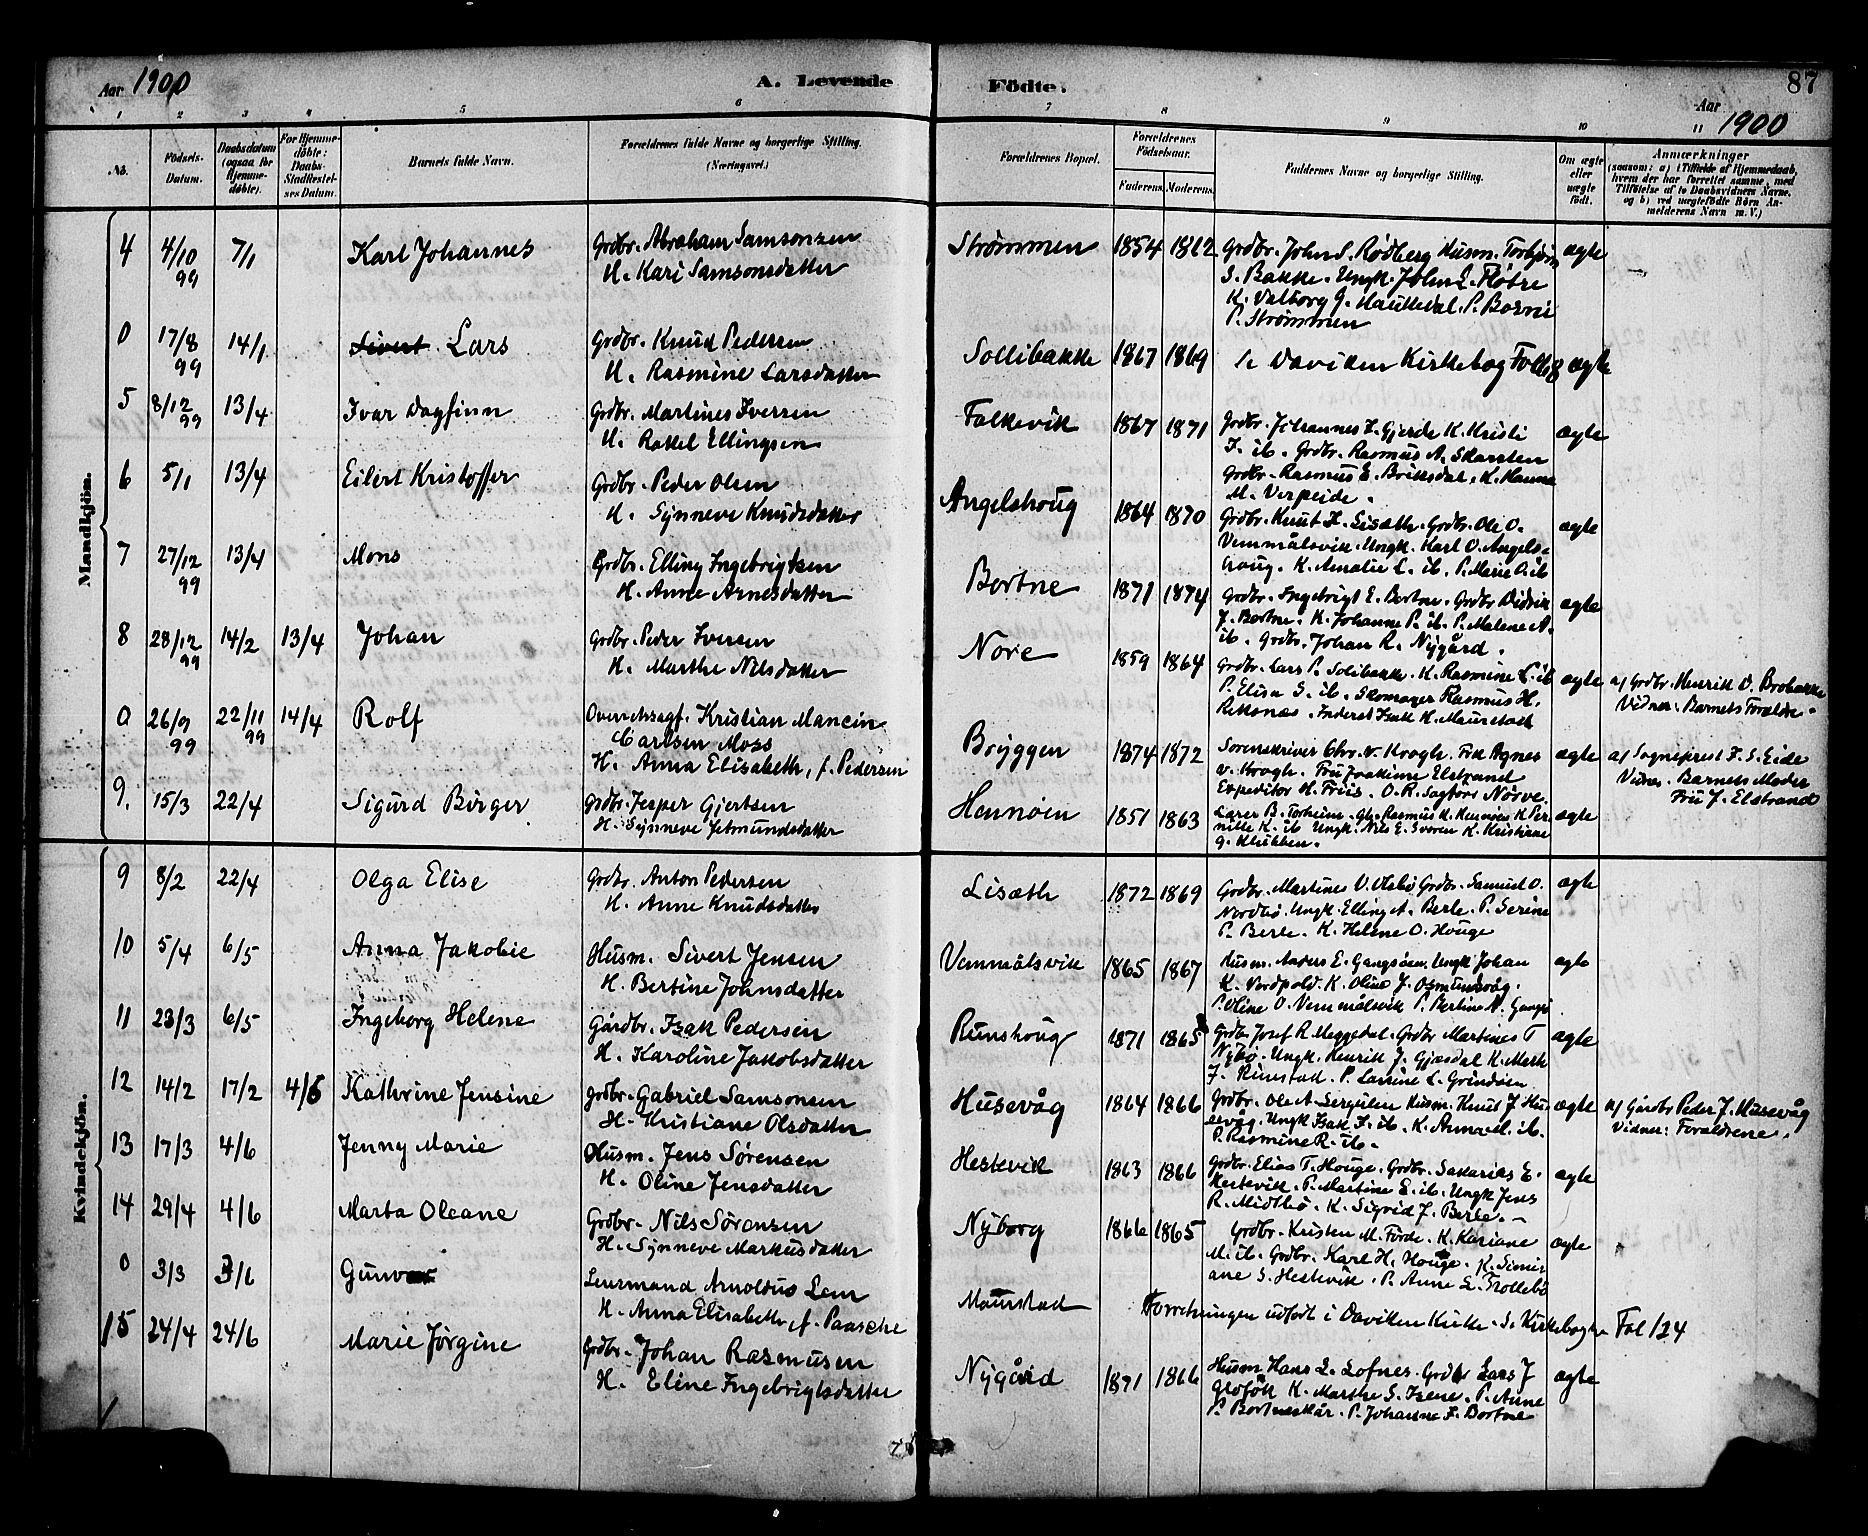 Aar 1900
A. Levende
1 2 3 4 5 6
No.
Födsels-Datum.
Daabsdatum (ogsaa for Hjemmedöbte).
For Hjemmedöbte: Daabs Stadfæstelses Datum.
Barnets fulde Navn.
Forældrenes fulde Navne og borgerlige Stilling. (Næringsvei.)
Mandkjön.
4 4/10 99 7/1 Karl Johannes Grdbr. Abraham Samsonsen
H. Kari Samsonsdatter
0 17/8 99 14/1 Sivert Lars Grdbr. Knud Pedersen
H. Rasmine Larsdatter
5 8/12 99 13/4 Ivar Dagfinn Grdbr. Martines Iversen
H. Rakel Ellingsen
6 5/1 13/4 Eilert Kristoffer Grdbr. Peder Olsen
H. Synneve Knudsdatter
7 27/12 99 13/4 Mons Grdbr. Elling Ingebrigtsen
H. Anne Arnesdatter
8 28/12 99 14/2 13/4 Johan Grdbr. Peder Iversen
H. Marthe Nilsdatter
0 26/9 99 22/11 99 14/4 Rolf Overretssagf. Kristian Mancin
Carlsen Moss
H. Anna Elisabeth, f. Pedersen
9. 15/3 22/4 Sigurd Birger Grdbr. Jesper Gjertsen
H. Synneve Jetmundsdatter
Kvindekjön.
9 8/2 22/4 Olga Elise Grdbr. Anton Pedersen
H. Anne Knudsdatter
10 5/4 6/5 Anna Jakobie Husm. Sivert Jensen
H. Bertine Johnsdatter
11 23/3 6/5 Ingeborg Helene Gårdbr. Isak Pedersen
H. Karoline Jakobsdatter
12 14/2 17/2 4/6 Kathrine Jensine grdbr. Gabriel Samsonsen
H. Kristiane Olsdatter
13 17/3 4/6 Jenny Marie Husm. Jens Sørensen
H. Oline Jensdatter
14 29/4 4/6 Marta Oleane Grdbr. Nils Sørensen
H. Synneve Markusdatter
0 3/3 3/6 Gunvor Lensmand Arnoldus Lem
H. Anna Elisabeth f. Paasche
15 24/4 24/6 Marie Jørgine Grdbr. Johan Rasmusen
H. Eline Ingebrigtsdatter
Födte.
87
Aar 1900
7 8 9 10 11
Forældrenes Bopæl.
Forældrenes Födselsaar.
Faderens. Moderens.
Faddernes Navne og borgerlige Stilling.
Om ægte eller uægte födt.
Anmærkninger
(saasom: a) i Tilfælde af Hjemmedaab, hvem der har forrettet samme, med Tilföielse af to Daabsvidners Navne, og b) ved uægtefödte Börn Anmelderens Navn m. V.)
Strømmen 1854 1862 Grdbr. John S. Rødberg Husm. Torbjörn ægte
S. Bakke. Ungk. John L. Fløtre
K. Valborg J. Haukedal. P.
P. Strømmen
Sollibakke 1867 1869 Se Daviken Kirkebog Fol. ægte
Falkevik 1867 1871 Grdbr. Johannes I. Gjerde K. Kristi ægte
I. ib. Grdbr. Rasmus A. Skarsten
Grdbr. Rasmus E. Briksdal. K. Hanna
M. Verpeide.
Angelshoug 1864 1870 Grdbr. Knut I. Lisæth. Grdbr. Ole O. ægte
Vemmålsvik. Ungk. Karl O. Angels-
houg. K. Amalie L. ib. P. Marie O. ib
Bortne 1871 1874 Grdbr. Ingebrigt E. Bortne. Grdbr. Didrik ægte
J. Bortne. K. Johanne P. ib. P. Malene A.
ib. Grdbr. Johan R. Nygård.
Nore 1859 1864 Grdbr. Lars P. Solibakke. K. Rasmine L. ib ægte af Grdbr. Henrik O. Brobakke
P. Elisa S. ib. Skomager Rasmus H. Vidner: Barnets Forældre.
Reksnes. Inderst Isak H. Maurstad
Bryggen 1874 1872 Sorenskriver Chr. v. Krogh. Frk. Agnes ægte af Sogneprest F. S. Eide
v. Krogh. Fru Joakime Elstrand Vidner. Barnets Moder
Expeditør H. Friis. O. R. Sagfører Nørve. Fru J. Elstrand
Hennøen 1851 1863 Lærer B. Torheim. Rasmus K. Hennøen K. Per- ægte
nille K. ib Ungk. Nils E. Svoren K. Kristiane
G. Klubben.
Lisæth 1872 1869 Grdbr. Martines V. Grdbr. Samuel O. ægte
Nordbø. Ungk. Elling A. Berle. P. Serine
P. Berle. K. Helene O. Houge
Vemmålsvik 1865 1867 Husm. Anders E. Gangsøen. Ungk Johan ægte
K. Nordpold. K. Oline J. Osmundsvåg.
P. Oline O. Vemmålsvik P. Bertine A. Gangs
Rimshoug 1871 1865 Grdbr. Josef R. Meggedal. Grdbr Martines T ægte
Nybø. Ungk. Henrik J. Gjæsdal K. Marth
J. Rimstad. P. Larsine L. Grindøen
Husevåg 1864 1866 Grdbr. Ole A. Husm. Knud J. Hu- ægte af Gårdbr Peder J. Husevåg
sevåg. Ungk Isak I. ib. K. Anna ib. Vidner: Forældrene.
P. Rasmine R. ib.
Hestevik 1863 1866 Grdbr. Elias T. Houge. Grdbr. Sakarias E. ægte
Hestevik. P. Martine E. ib. Ungk Jens
R. Midtbø. K. Sigrid J. Berle.
Nyborg 1866 1865 Grdbr. Kristen M. Førde. K. Kariane ægte
M. ib. Grdbr. Karl H. Houge. K. Simi-
ane S. Hestevik. P. Anne L. Trollebø
Maurstad Forretningen udført i Daviken Kirke. S. Kirkebogen Fol 124
Nygård 1871 1866 Husm Hans L. Lofnes. Grdbr Lars J ægte
K. Marthe S. Isene. P. Anne
P. Bortneskår. P. Johanne I. Bortne